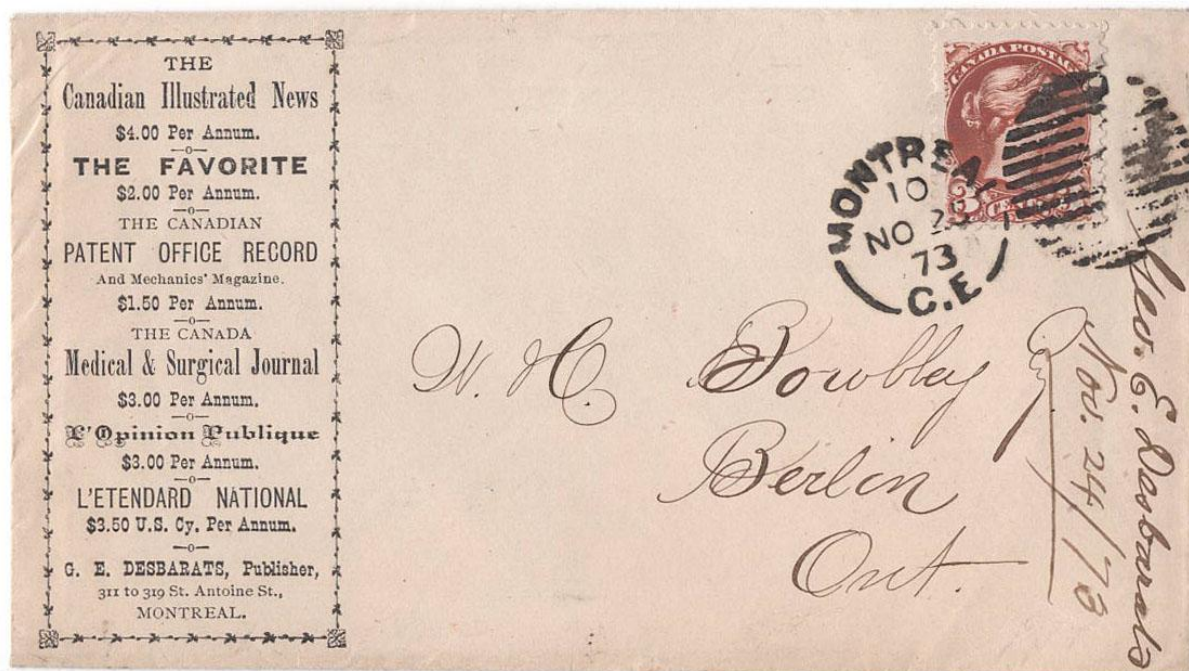 THE
Canadian Illustrated News
$4.00 Per Annum.
—o—
THE FAVORITE
$2.00 Per Annum.
—o—
THE CANADIAN
PATENT OFFICE RECORD
And Mechanics' Magazine.
$1.50 Per Annum.
—o—
THE CANADA
Medical & Surgical Journal
$3.00 Per Annum.
—o—
L'Opinion Publique
$3.00 Per Annum.
—o—
L'ETENDARD NATIONAL
$3.50 U.S. Cy. Per Annum.
—o—
G. E. DESBARATS, Publisher,
311 to 319 St. Antoine St.,
MONTREAL.
CANADA POSTAGE
3 CENTS
MONTREA
10
NO
73
C.E
W. H. Bowlby
Berlin
Ont.
Geo. E. Desbarats
Nov. 24/73